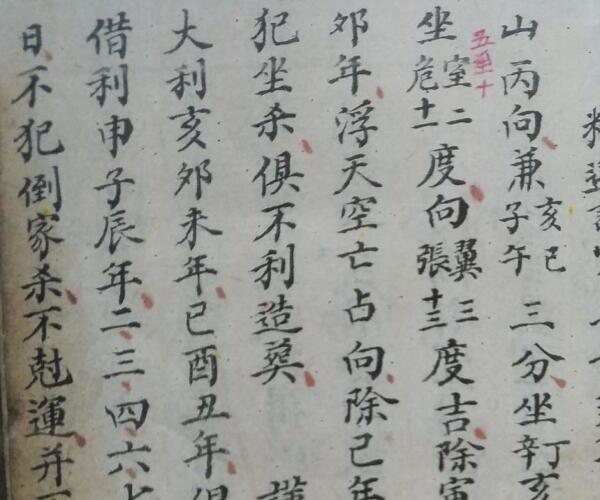 山丙向兼亥巳子午三分坐丁亥辛
坐室二危十一度向翼三張十三度吉除寅
卯年浮天空亡占向除己年
犯坐杀俱不利造葬
大利亥卯未年巳酉丑年俱
借利申子辰年二三四六七
日不犯倒家杀不尅運并